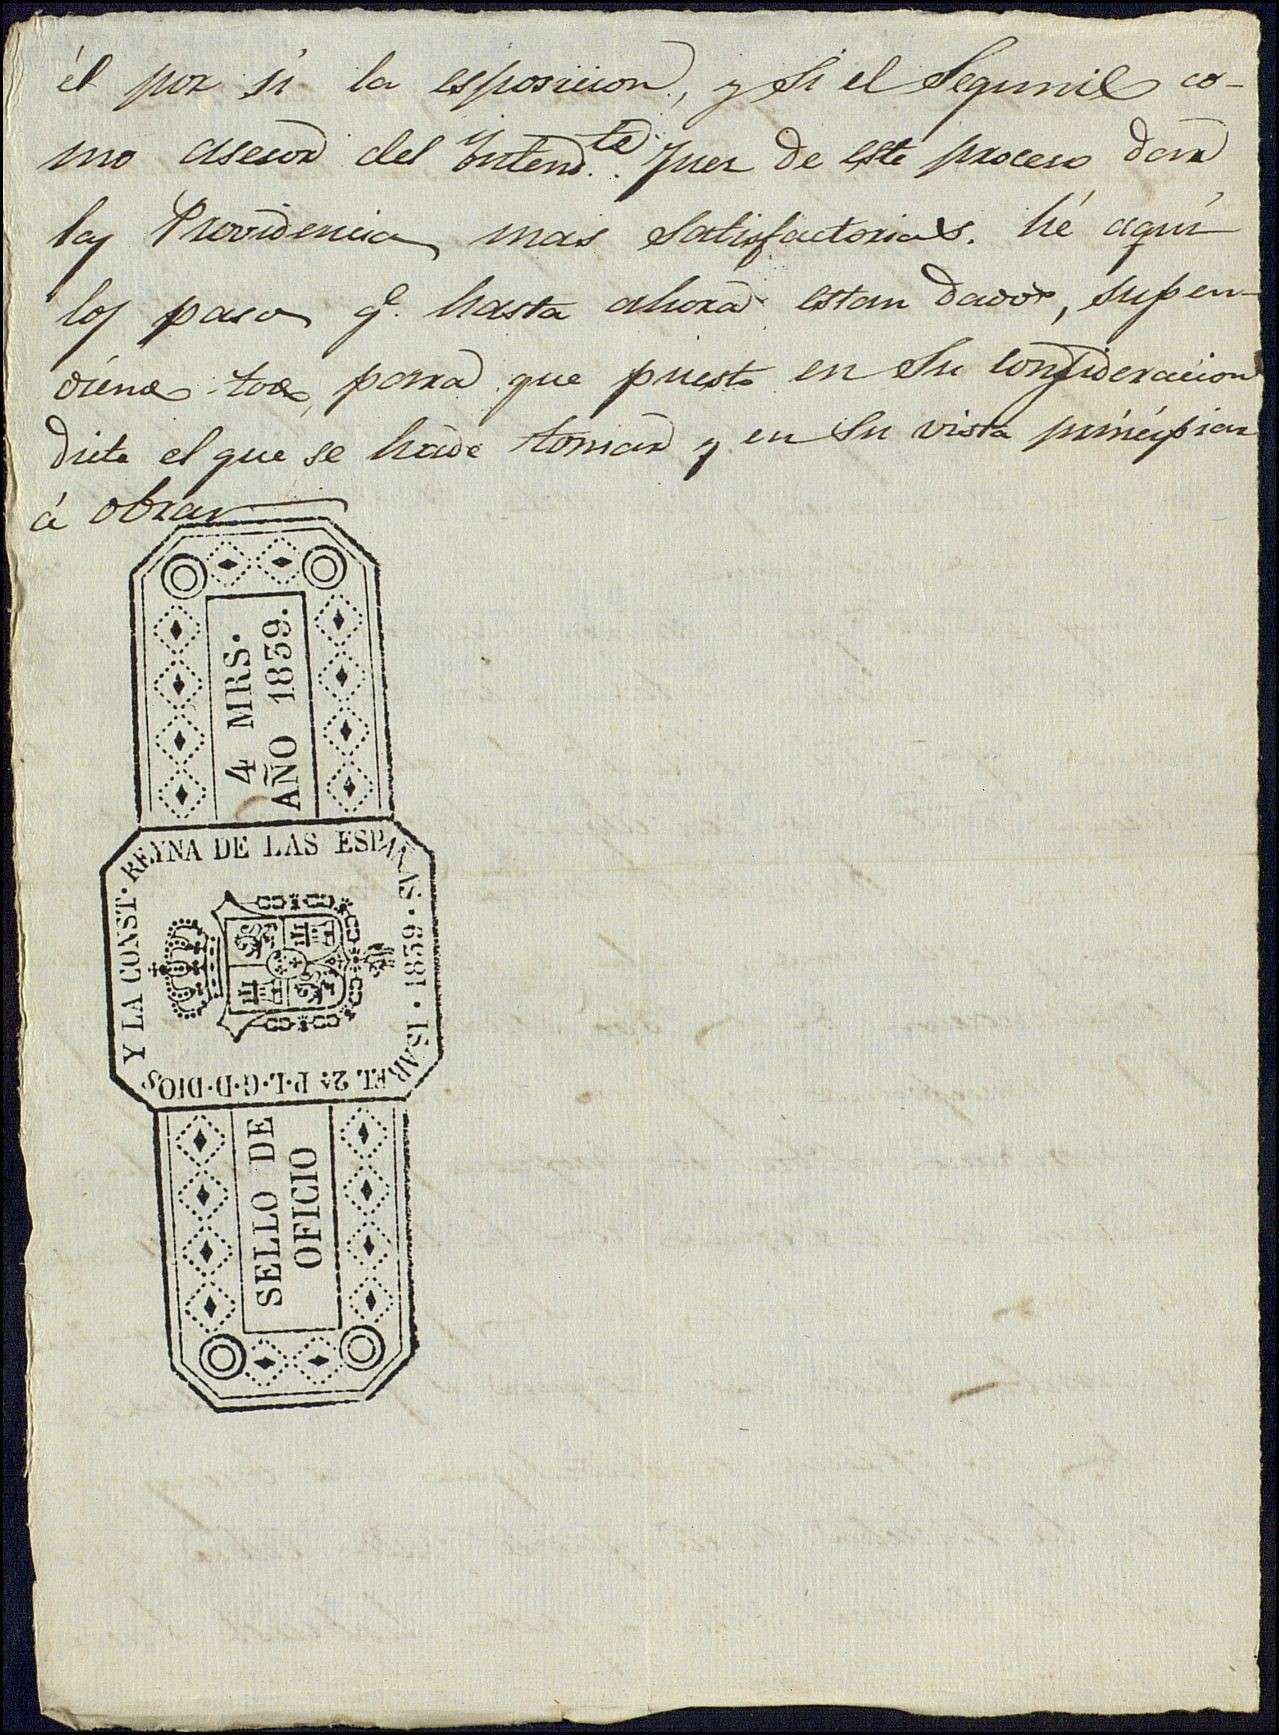 él por si la esposicion, y si el Segunil co-
mo asesor del Intend.te Juez de este proceso dara
las Providencias mas satisfactorias. hé aqui
los pasos q.e hasta ahora estan dados, supen-
diendo para que puesto en su consideracion
dicte el que se hade tomar y en su vista principiar
á obrar
4 MRS.
AÑO 1839.
ISABEL 2ª P.L.G.D.DIOS Y LA CONST. REYNA DE LAS ESPAÑAS. 1839.
SELLO DE
OFICIO